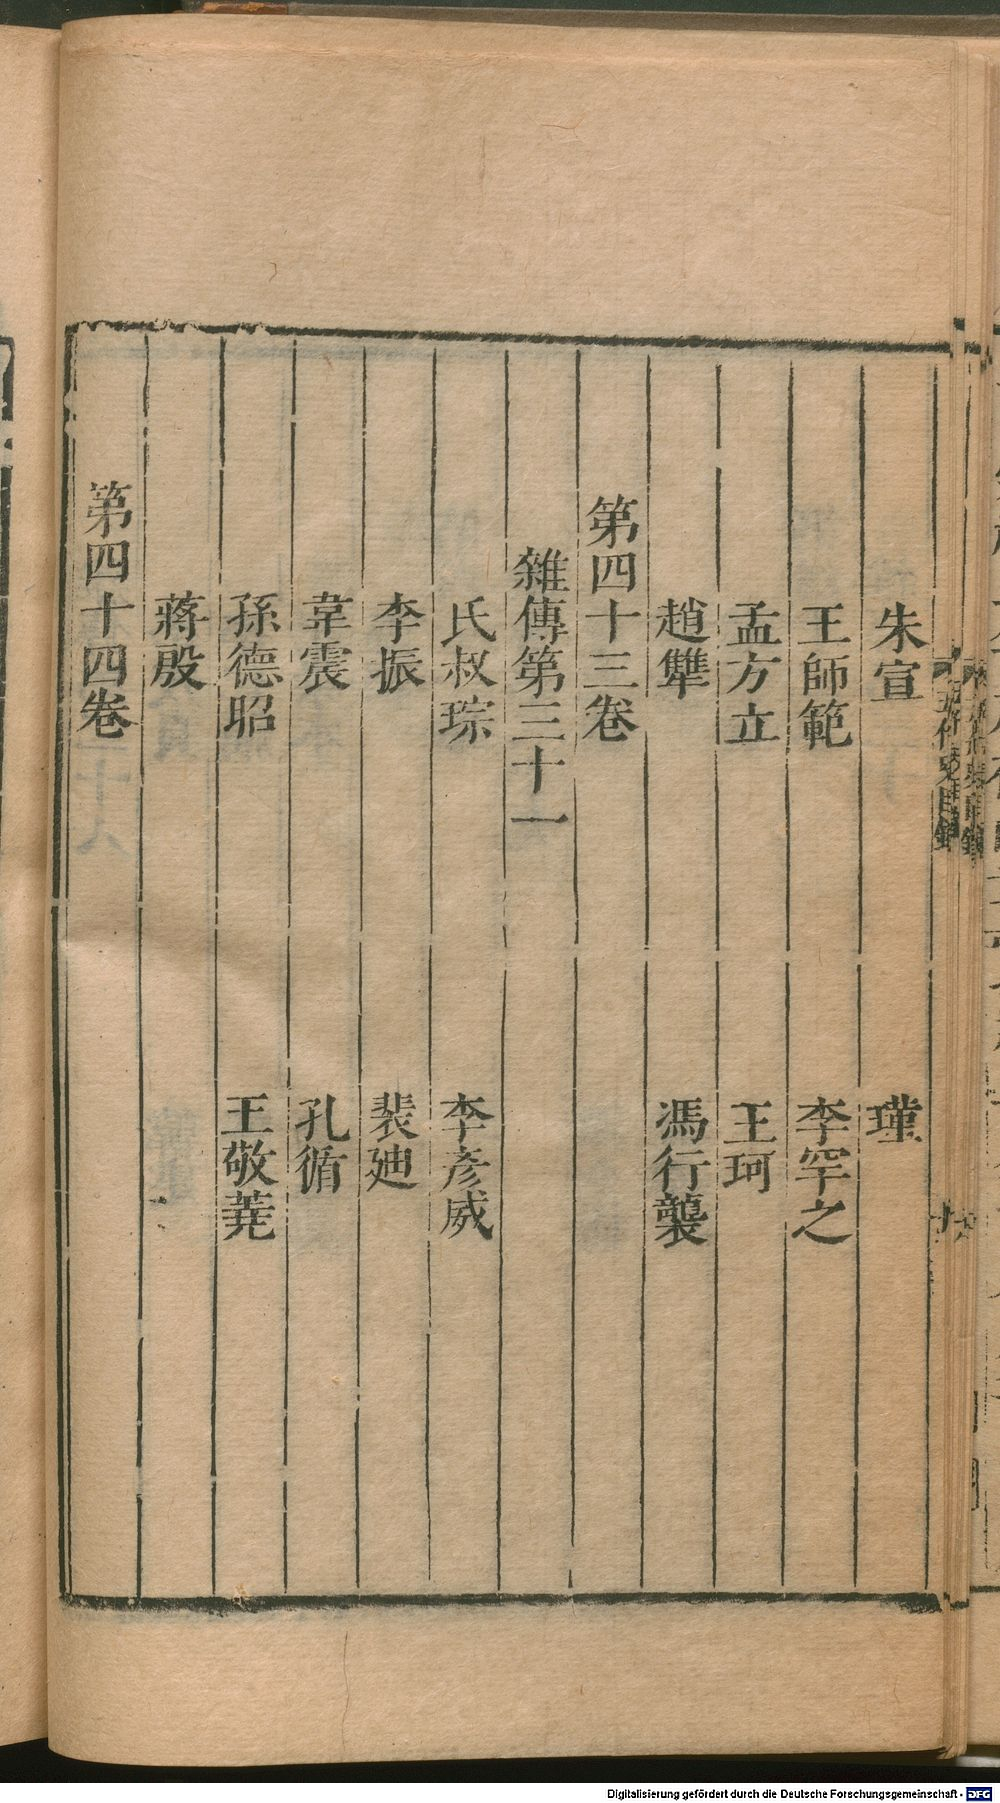 朱宣　瑾
王師範　李罕之
孟方立　王珂
趙犨　馮行襲
第四十三卷
雜傳第三十一
氏叔琮　李彥威
李振　裴迪
韋震　孔循
孫德昭　王敬蕘
蔣殷
第四十四卷
五代史目錄
Digitalisierung gefördert durch die Deutsche Forschungsgemeinschaft - DFG